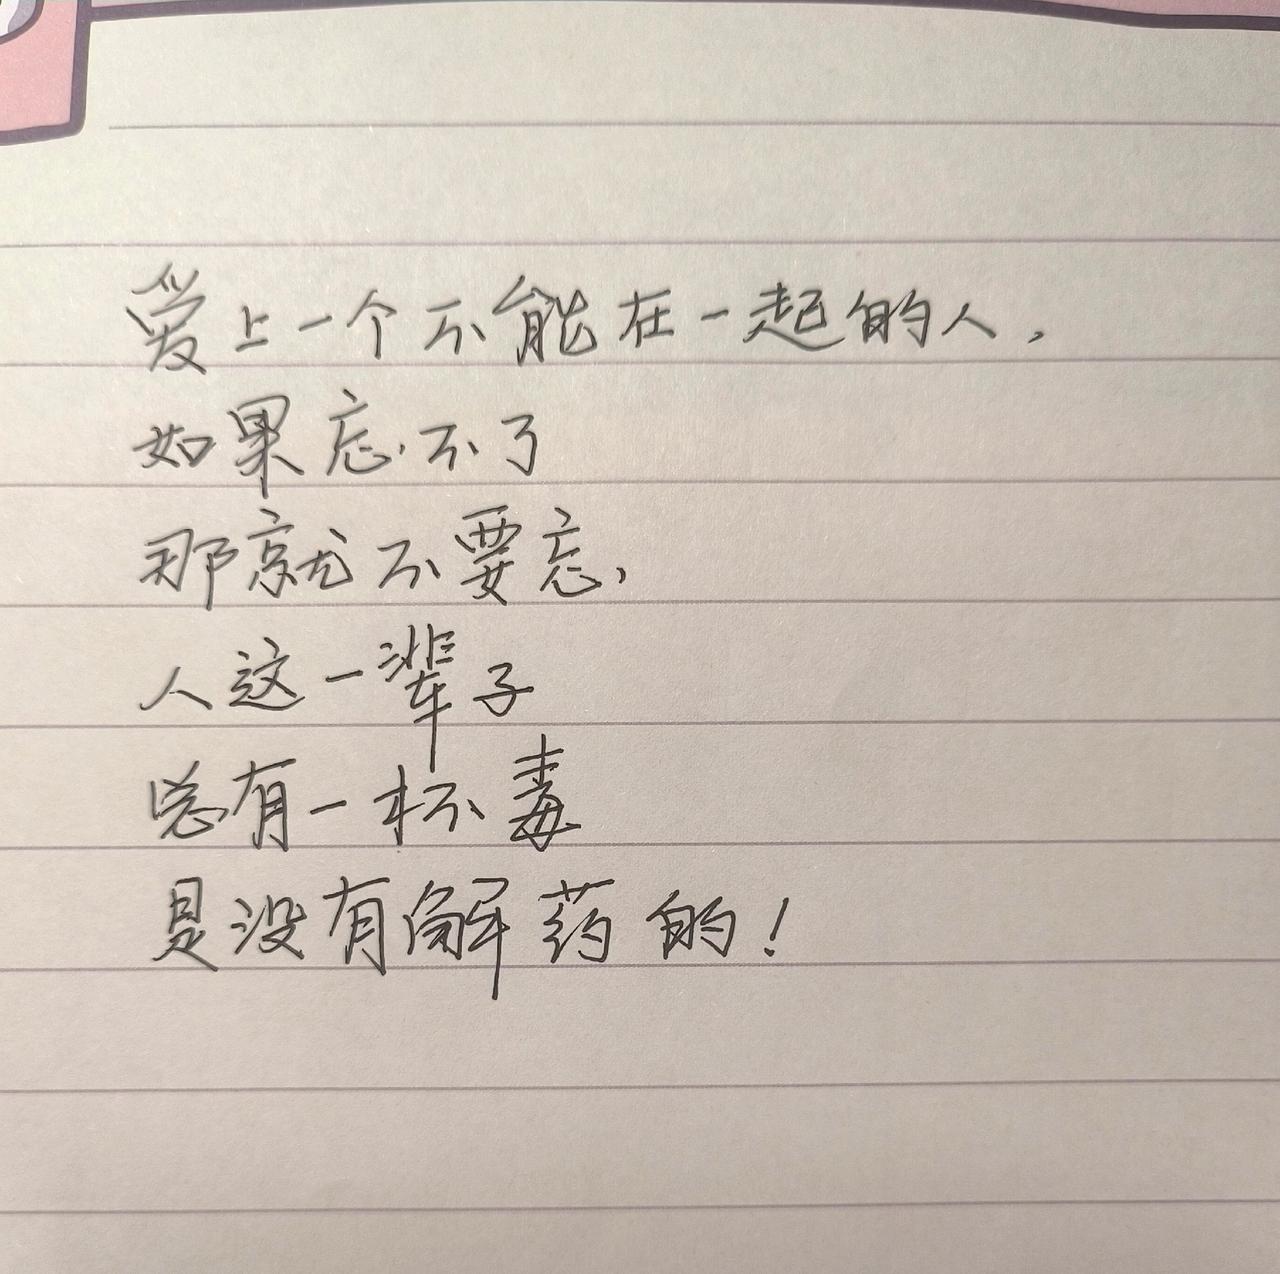 爱上一个不能在一起的人，
如果忘不了
那就不要忘，
人这一辈子
总有一杯毒
是没有解药的！